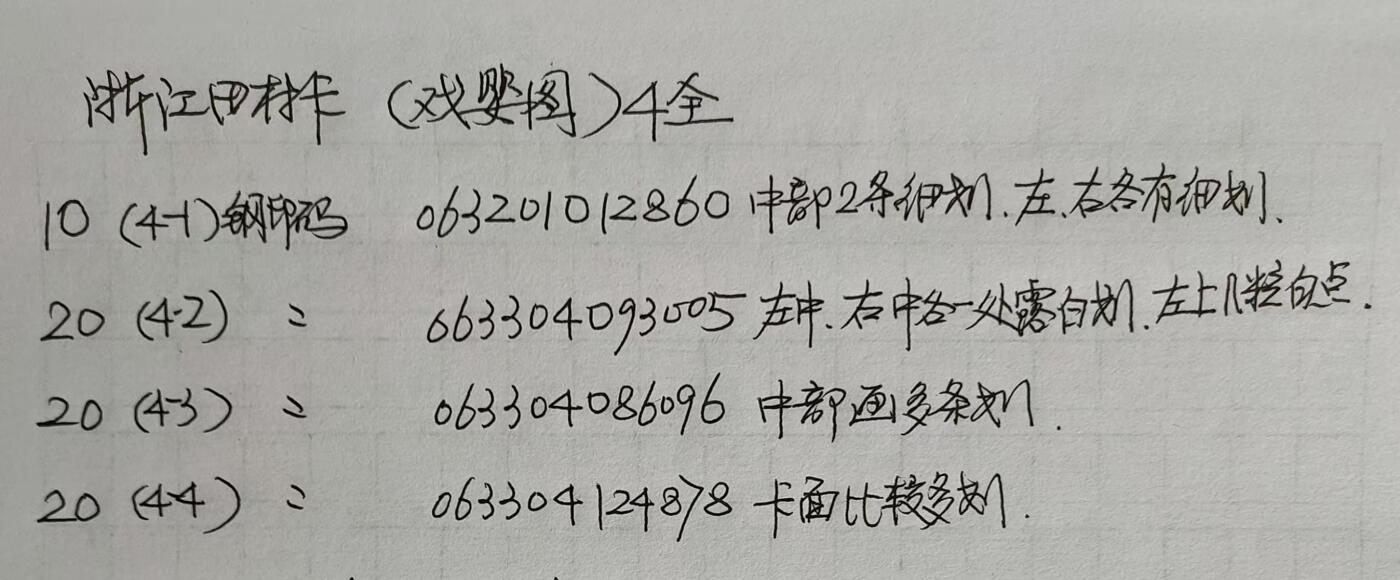 浙江田村卡（戏婴图）4全
10（4-1）钢印码 063201012860 中部2条细划、左、右各有细划、
20（4-2） = 063304093005 左中、右中各一处露白划、左上几粒白点.
20（4-3） = 063304086096 中部画多条划.
20（4-4） = 063304124878 卡面比较多划.